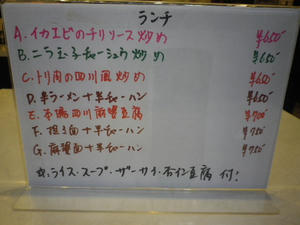 ランチ
A. イカエビのチリソース炒め ¥650
B. ニラ玉子チャーシュウ炒め ¥650
C. トリ肉の四川風炒め ¥650
D. 半ラーメン+半チャーハン ¥650
E. 本場四川麻婆豆腐 ¥700
F. 担々面+半チャーハン ¥750
G. 麻婆面+半チャーハン ¥750
ライス・スープ・ザーサイ・杏仁豆腐 付!